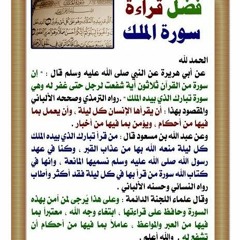 فضل قراءة
سورة الملك
الحمد لله
عن أبي هريرة عن النبي صلى الله عليه وسلم قال : " إن
سورة من القرآن ثلاثون آية شفعت لرجل حتى غفر له وهي
سورة تبارك الذي بيده الملك " رواه الترمذي وصححه الألباني
والمقصود بهذا : أن يقرأها الإنسان كل ليلة ، وأن يعمل بما
فيها من أحكام ، ويؤمن بما فيها من أخبار .
وعن عبد الله بن مسعود قال : من قرأ تبارك الذي بيده الملك
كل ليلة منعه الله بها من عذاب القبر ، وكنا في عهد
رسول الله صلى الله عليه وسلم نسميها المانعة ، وإنها في
كتاب الله سورة من قرأ بها في كل ليلة فقد أكثر وأطاب
رواه النسائي وحسنه الألباني .
وقال علماء اللجنة الدائمة :
وعلى هذا يُرجى لمن آمن بهذه
السورة وحافظ على قراءتها ، ابتغاء وجه الله ، معتبراً بما
فيها من العبر والمواعظ ، عاملاً بما فيها من أحكام أن
تشفع له . والله أعلم .